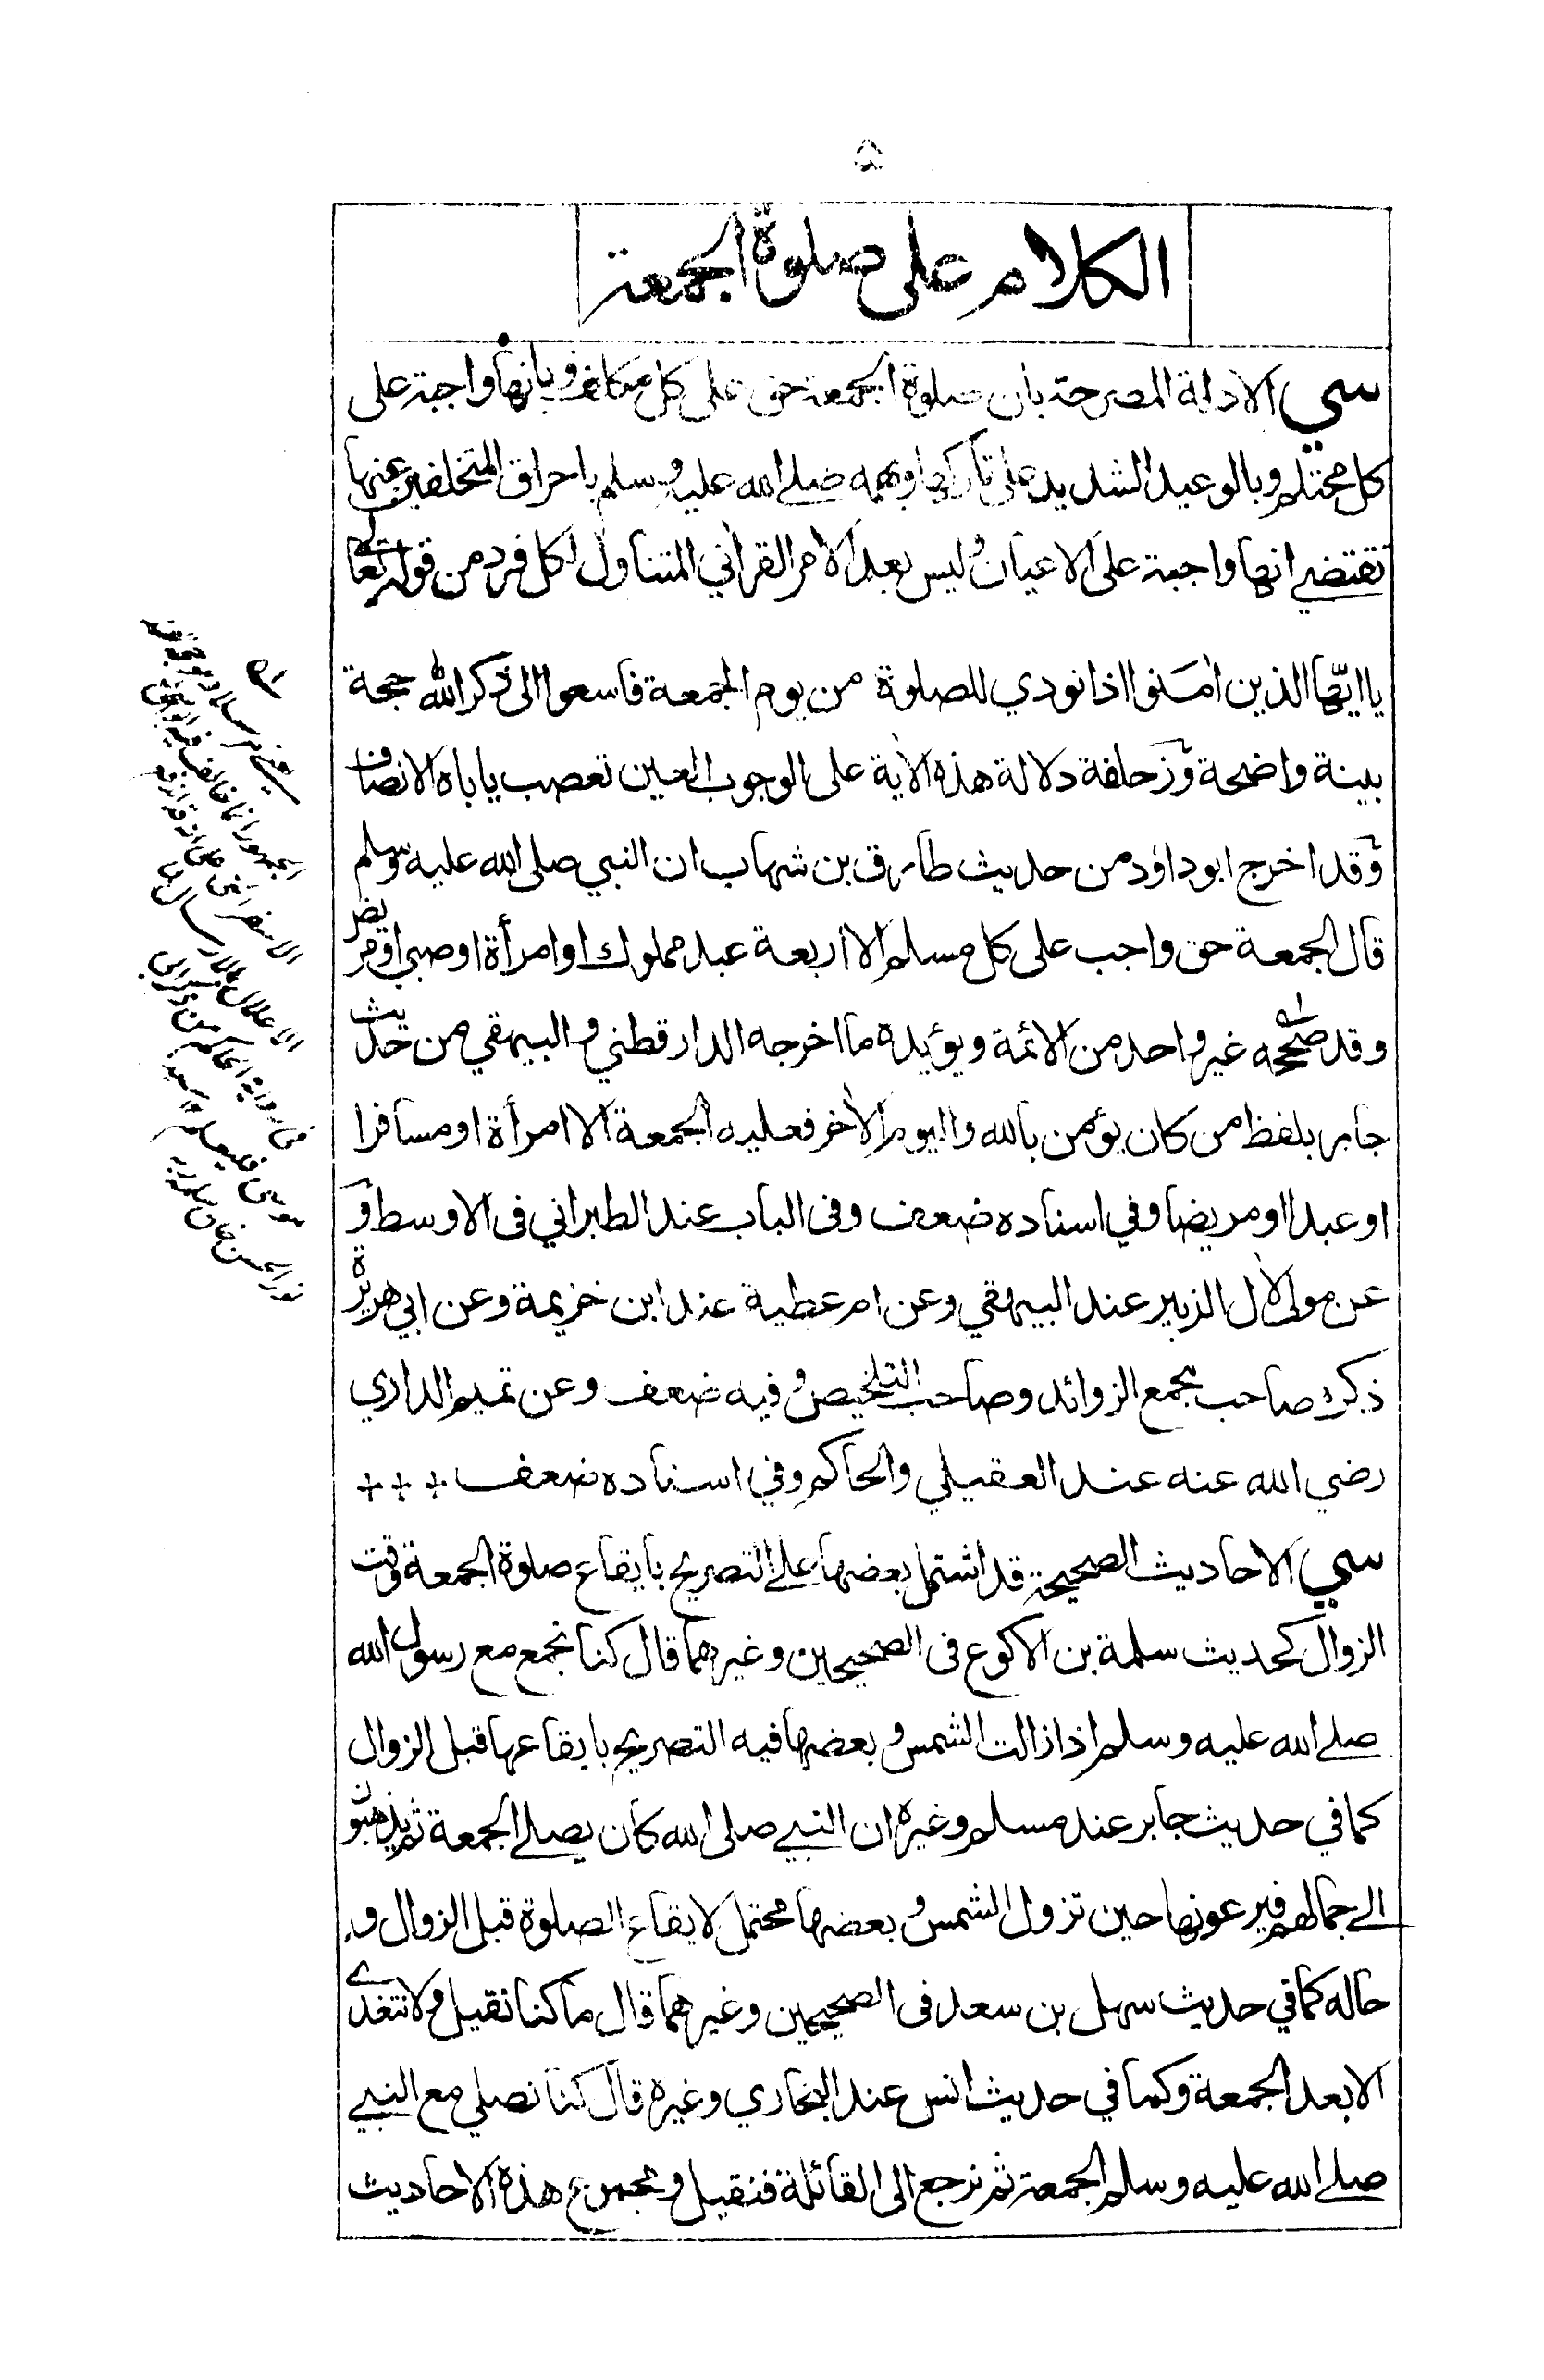 ٥
الكلام على صلوة الجمعة
سي الادلة المصرحة بان صلوة الجمعة حق على كل مكلف وبانها واجبة على
كل محتلم وبالوعيد الشديد على تاركها وبهمه صلے الله عليه وسلم باحراق المتخلفين عنها
تقتضے انها واجبة على الاعيان وليس بعد الامر القرآني المتناول لكل فرد من قوله تعالے
يا ايها الذين امنوا اذا نودي للصلوة من يوم الجمعة فاسعوا الى ذكر الله حجة
بينة واضحة وزحلفة دلالة هذه الآية على الوجوب العين تعصب ياباه الانصاف
وقد اخرج ابو داود من حديث طارق بن شهاب ان النبي صلى الله عليه وسلم
قال الجمعة حق واجب على كل مسلم الا اربعة عبد مملوك او امرأة او صبي او مريض
وقد صححه غير واحد من الائمة ويؤيده ما اخرجه الدارقطني والبيهقي من حديث
جابر بلفظ من كان يؤمن بالله واليوم الآخر فعليه الجمعة الا امرأة او مسافرا
او عبدا او مريضا وفي اسناده ضعف وفى الباب عند الطبراني فى الاوسط و
عن مولى لآل الزبير عند البيهقي وعن ام عطية عند ابن خزيمة وعن ابي هريرة
ذكره صاحب مجمع الزوائد وصاحب التلخيص وفيه ضعف وعن تميم الداري
رضي الله عنه عند العقيلي والحاكم وفي اسناده ضعف + + +
سي الاحاديث الصحيحة قد اشتمل بعضها على التصريح بايقاع صلوة الجمعة وقت
الزوال كحديث سلمة بن الاكوع فى الصحيحين وغيرهما قال كنا نجمع مع رسول الله
صلے الله عليه وسلم اذا زالت الشمس وبعضها فيه التصريح بايقاعها قبل الزوال
كما في حديث جابر عند مسلم وغيره ان النبے صلى الله كان يصلے الجمعة ثم يذهبون
الے جمالهم فيرعونها حين تزول الشمس وبعضها محتمل لايقاع الصلوة قبل الزوال و
حاله كما في حديث سهل بن سعد فى الصحيحين وغيرهما قال ما كنا نقيل ولا نتغدے
الا بعد الجمعة وكما في حديث انس عند البخاري وغيره قال كنا نصلي مع النبے
صلے الله عليه وسلم الجمعة ثم نرجع الى القائلة فنقيل ومجموع هذه الاحاديث